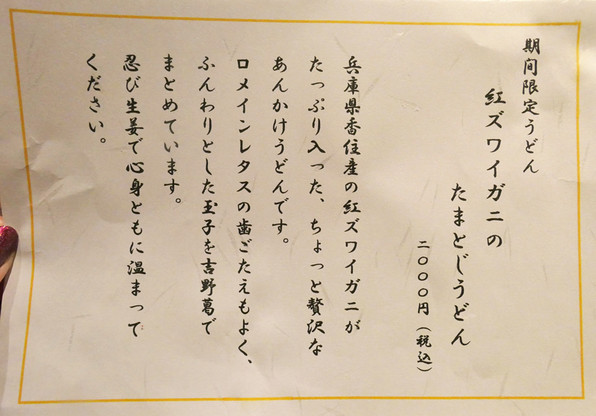 期間限定うどん
紅ズワイガニの
たまとじうどん
二〇〇〇円（税込）
兵庫県香住産の紅ズワイガニが
たっぷり入った、ちょっと贅沢な
あんかけうどんです。
ロメインレタスの歯ごたえもよく、
ふんわりとした玉子を吉野葛で
まとめています。
忍び生姜で心身ともに温まって
ください。